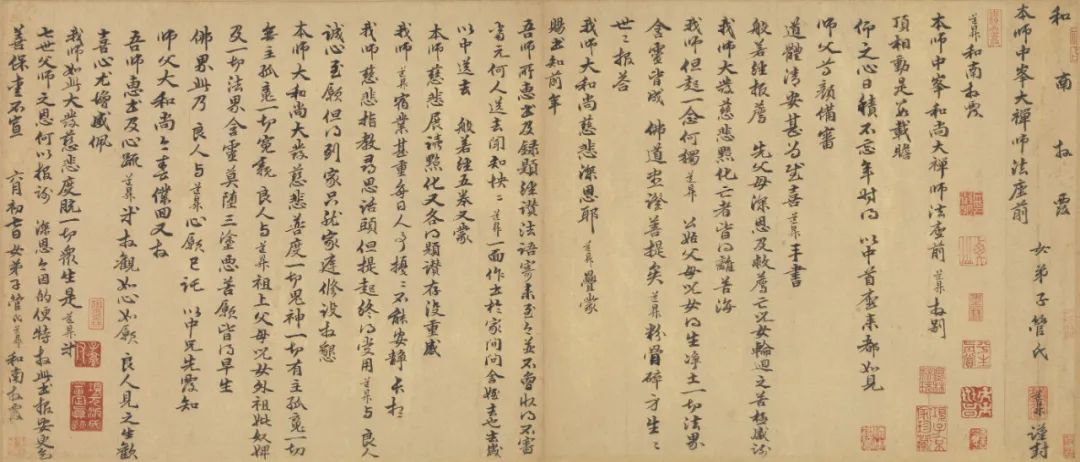 和南 拜覆
本師中峯大禪師法座前
女弟子管氏 道昇 謹封
道昇和南拜覆
本師中峯和尚大禪師法座前 道昇拜別
頂相動是數載瞻
仰之心日積不忘年時得 以中首座來都如見
師父尊顏備審
道體清安甚為忻喜 道昇手書
般若經報薦 先父母深恩及救薦亡兒女輪迴之苦極感謝
我師大和尚大發慈悲點化亡者皆得離苦海
我師但起一念何獨 道昇 公姑父母兒女得生淨土一切法界
含靈皆成 佛道盡證菩提矣 道昇粉骨碎身生生
世世報答
我師大和尚慈悲深恩耶 道昇疊蒙
賜書知前年
吾師所惠書及錄題經讚法語寄來至今並不曾收得不審
當元何人送去聞知怏怏 道昇一面作書於家間問舍姪去也去歲
以中送去 般若經五卷又蒙
本師慈悲展讀點化又各得題讚存沒重感
我師 道昇宿業甚重每日人事擾擾不能安靜長想
我師慈悲指教尋思話頭但提起終得受用道昇與 良人
誠心至願但得到家只就家庭修設拜懇
本師大和尚大發慈悲普度一切鬼神一切有主孤魂一切
無主孤魂一切冤親 良人與道昇祖上父母兒女外祖妣奴婢
及一切法界含靈莫墮三塗惡苦願皆得早生
佛界此乃 良人與道昇心願已託 以中兄先覆知
師父大和尚今春僕回又拜
吾師惠書及心疏 道昇 拜觀如心如願 良人見之生歡
喜心尤增感佩
我師如此大發慈悲度脫一切眾生是道昇
七世父師之恩何以報謝 深恩今因的便特拜此書拜安更乞
善保重不宣 六月初吉日女弟子管氏道昇和南拜覆